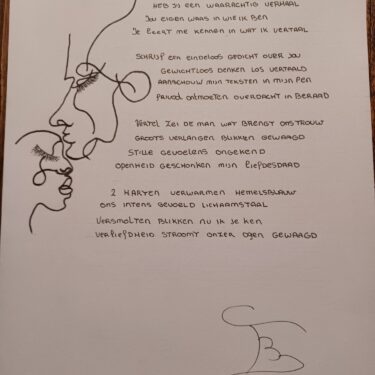 HEB JIJ EEN WAARACHTIG VERHAAL
JOU EIGEN WAAS IN WIE IK BEN
JE LEERT ME KENNEN IN WAT IK VERTAAL
SCHRIJF EEN EINDELOOS GEDICHT OVER JOU
GEWICHTLOOS DENKEN LOS VERTAALD
AANSCHOUW MIJN TEKSTEN IN MIJN PEN
PRIVAAT ONTMOETEN OVERDACHT IN BERAAD
VERTEL ZEI DE MAN WAT BRENGT ONS TROUW
GROOTS VERLANGEN BLIKKEN GEWAAGD
STILLE GEVOELENS ONGEKEND
OPENHEID GESCHONKEN MIJN LIEFDESDAAD
2 HARTEN VERWARMEN HEMELSBLAUW
ONS INTENS GEVOELD LICHAAMSTAAL
VERSMOLTEN BLIKKEN NU IK JE KEN
VERLIEFDHEID STROOMT ONZER OGEN GEWAAGD